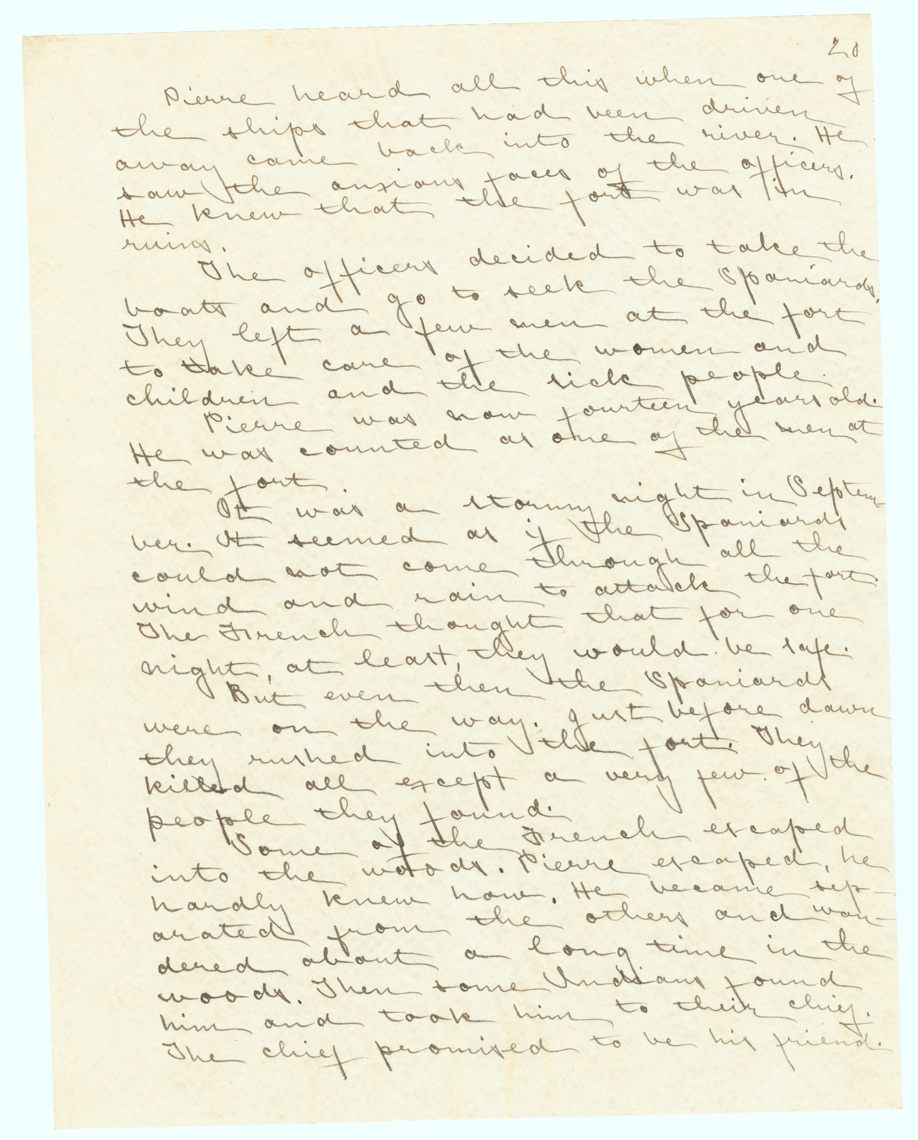 20
Pierre heard all this when one of
the ships that had been driven
away came back into the river. He
saw the anxious faces of the officers.
He knew that the fort was in
ruins.
The officers decided to take the
boats and go to seek the Spaniards.
They left a few men at the fort
to take care of the women and
children and the sick people.
Pierre was now fourteen years old.
He was counted as one of the men at
the fort
It was a stormy night in Septem-
ber. It seemed as if the Spaniards
could not come through all the
wind and rain to attack the fort.
The French thought that for one
night, at least, they would be safe.
But even then the Spaniards
were on the way. Just before dawn
they rushed into the fort. They
killed all except a very few of the
people they found.
Some of the French escaped
into the woods. Pierre escaped, he
hardly knew how. He became sep-
arated from the others and wan-
dered about a long time in the
woods. Then some Indians found
him and took him to their chief.
The chief promised to be his friend.